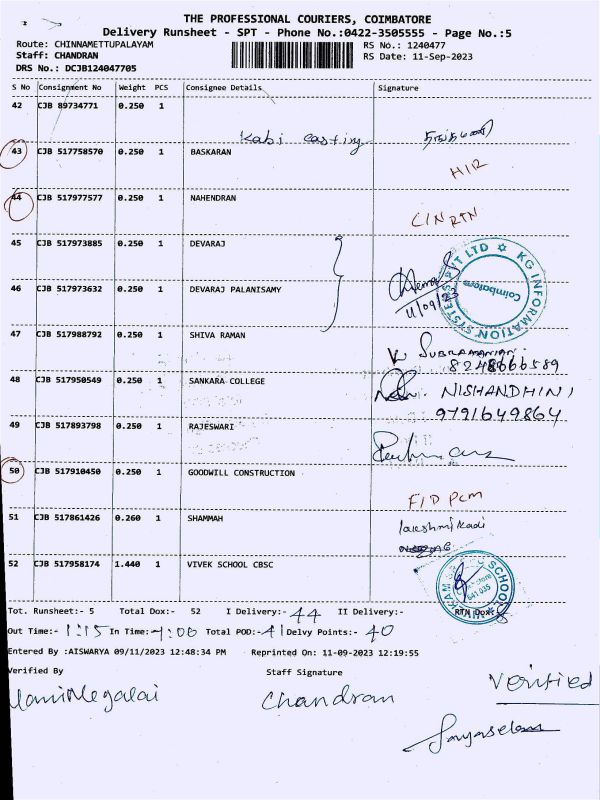 THE PROFESSIONAL COURIERS, COIMBATORE
Delivery Runsheet - SPT - Phone No.:0422-3505555 - Page No.:5
Route: CHINNAMETTUPALAYAM RS No.: 1240477
Staff: CHANDRAN RS Date: 11-Sep-2023
DRS No.: DCJB124047705
S No Consignment No Weight PCS Consignee Details Signature
42 CJB 89734771 0.250 1
Kabi casting
43 CJB 517758570 0.250 1 BASKARAN
HIR
44 CJB 517977577 0.250 1 NAHENDRAN
C/N RTN
45 CJB 517973885 0.250 1 DEVARAJ
KG INFORMATION SYSTEMS PVT LTD
Coimbatore
46 CJB 517973632 0.250 1 DEVARAJ PALANISAMY
11/09/23
47 CJB 517988792 0.250 1 SHIVA RAMAN
V. SUBRAMANIAN.
8248666589
48 CJB 517950549 0.250 1 SANKARA COLLEGE
NISHANDHINI
9791649864
49 CJB 517893798 0.250 1 RAJESWARI
50 CJB 517910450 0.250 1 GOODWILL CONSTRUCTION
F/D PCM
51 CJB 517861426 0.260 1 SHAMMAH
lakshmikadi
52 CJB 517958174 1.440 1 VIVEK SCHOOL CBSC
641 035
Tot. Runsheet:- 5 Total Dox:- 52 I Delivery:- 44 II Delivery:- RTN Dox:- 8
Out Time:- 1:15 In Time:- 4:00 Total POD:- 41 Delvy Points:- 40
Entered By :AISWARYA 09/11/2023 12:48:34 PM Reprinted On: 11-09-2023 12:19:55
Verified By Staff Signature
ManiMegalai Chandran Verified